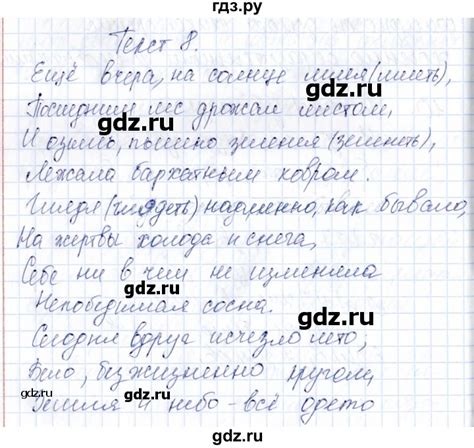 гдз.ру
Текст 8.
Ещё вчера, на солнце млея (млеть),
Последним лес дрожал листом,
И озимь, пышно зеленея (зеленеть),
Лежала бархатным ковром.
Глядя (глядеть) надменно, как бывало,
На жертвы холода и снега,
Себе ни в чем не изменила
Непобедимая сосна.
Сегодня вдруг исчезло лето,
Бело, безжизненно кругом,
Земля и небо - всё одето
gdz.ru
gdz.ru
gdz.ru
gdz.ru
gdz.ru
gdz.ru
gdz.ru
gdz.ru